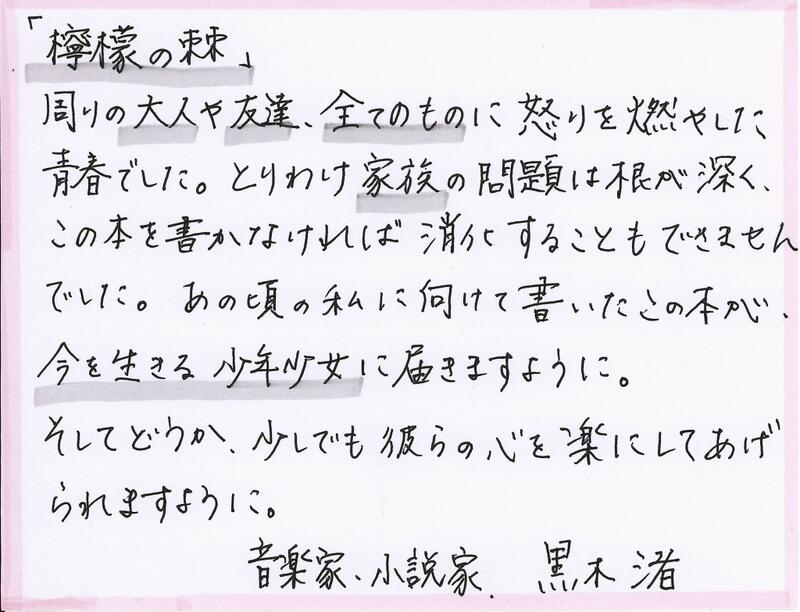 「檸檬の棘」
周りの大人や友達、全てのものに怒りを燃やした
青春でした。とりわけ家族の問題は根が深く、
この本を書かなければ消化することもできません
でした。あの頃の私に向けて書いたこの本が、
今を生きる少年少女に届きますように。
そしてどうか、少しでも彼らの心を楽にしてあげ
られますように。
音楽家、小説家 黒木渚